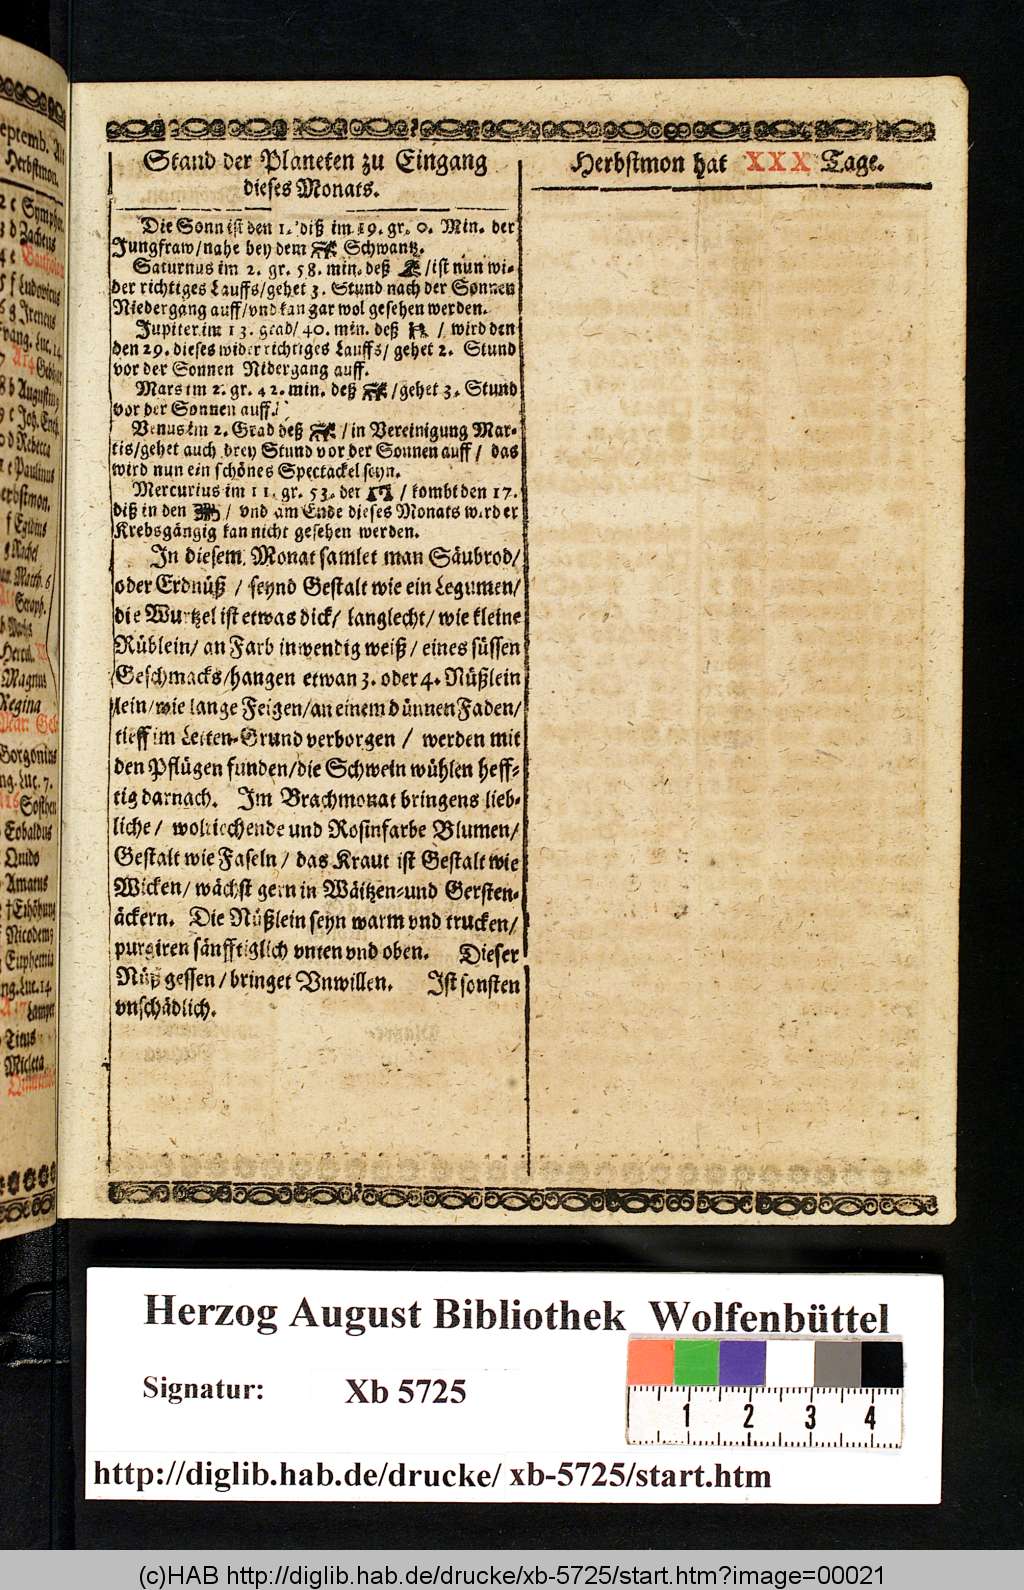 eptemb.
Herbstmon.
Stand der Planeten zu Eingang
dieses Monats.
Die Sonn ist den 1. diß im 19. gr. 0. Min. der
Jungfraw/nahe bey dem Schwantz.
Saturnus im 2. gr. 58. min. deß /ist nun wi-
der richtiges Lauffs/gehet 3. Stund nach der Sonnen
Niedergang auff/vnd kan gar wol gesehen werden.
Jupiter im 13. grad/ 40. min. deß / wird den
den 29. dieses wider richtiges Lauffs/ gehet 2. Stund
vor der Sonnen Nidergang auff.
Mars im 2. gr. 42. min. deß /gehet 3. Stund
vor der Sonnen auff.
Venus im 2. Grad deß / in Vereinigung Mar-
tis/gehet auch drey Stund vor der Sonnen auff / das
wird nun ein schönes Spectackel seyn.
Mercurius im 11. gr. 53. der / kombt den 17.
diß in den / vnd am Ende dieses Monats wird er
Krebsgängig kan nicht gesehen werden.
In diesem Monat samlet man Säubrod/
oder Erdnüß / seynd Gestalt wie ein Legumen/
die Wurtzel ist etwas dick/ langlecht/ wie kleine
Rüblein/ an Farb inwendig weiß / eines süssen
Geschmacks/hangen etwan 3. oder 4. Nüßlein
lein/wie lange Feigen/an einem dünnen Faden/
tieff im Letten-Grund verborgen / werden mit
den Pflügen funden/die Schwein wühlen heff-
tig darnach. Im Brachmonat bringens lieb-
liche/ wolriechende und Rosinfarbe Blumen/
Gestalt wie Faseln / das Kraut ist Gestalt wie
Wicken/ wächst gern in Wäitzen-und Gersten-
äckern. Die Nüßlein seyn warm vnd trucken/
purgiren sänfftiglich vnten vnd oben. Dieser
Nüß gessen / bringet Vnwillen. Ist sonsten
vnschädlich.
Herbstmon hat XXX Tage.
Herzog August Bibliothek Wolfenbüttel
Signatur: Xb 5725
1 2 3 4
http://diglib.hab.de/drucke/ xb-5725/start.htm
(c)HAB http://diglib.hab.de/drucke/xb-5725/start.htm?image=00021